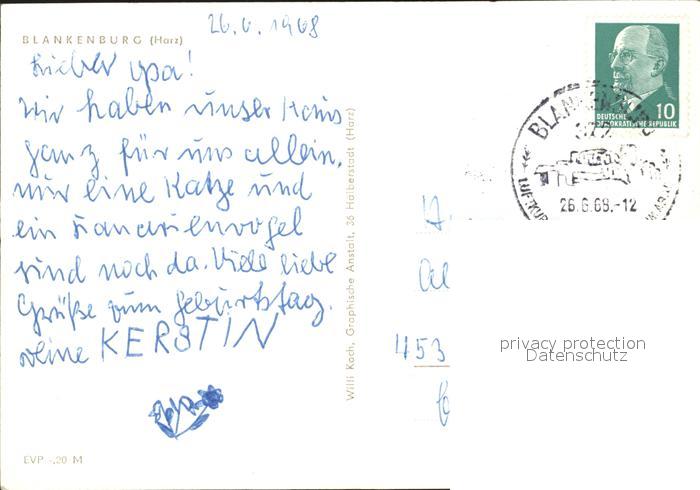 26.6.1968
BLANKENBURG (Harz)
Lieber Opa!
Wir haben unser Haus
ganz für uns allein,
nur eine Katze und
ein Kanarienvogel
sind noch da. Viele liebe
Grüße zum Geburtstag.
Deine KERSTIN
EVP -,20 M
Willi Koch, Graphische Anstalt, 36 Halberstadt (Harz)
10
DEUTSCHE
DEMOKRATISCHE REPUBLIK
BLANKENBURG
26.6.68.-12
453
privacy protection
Datenschutz